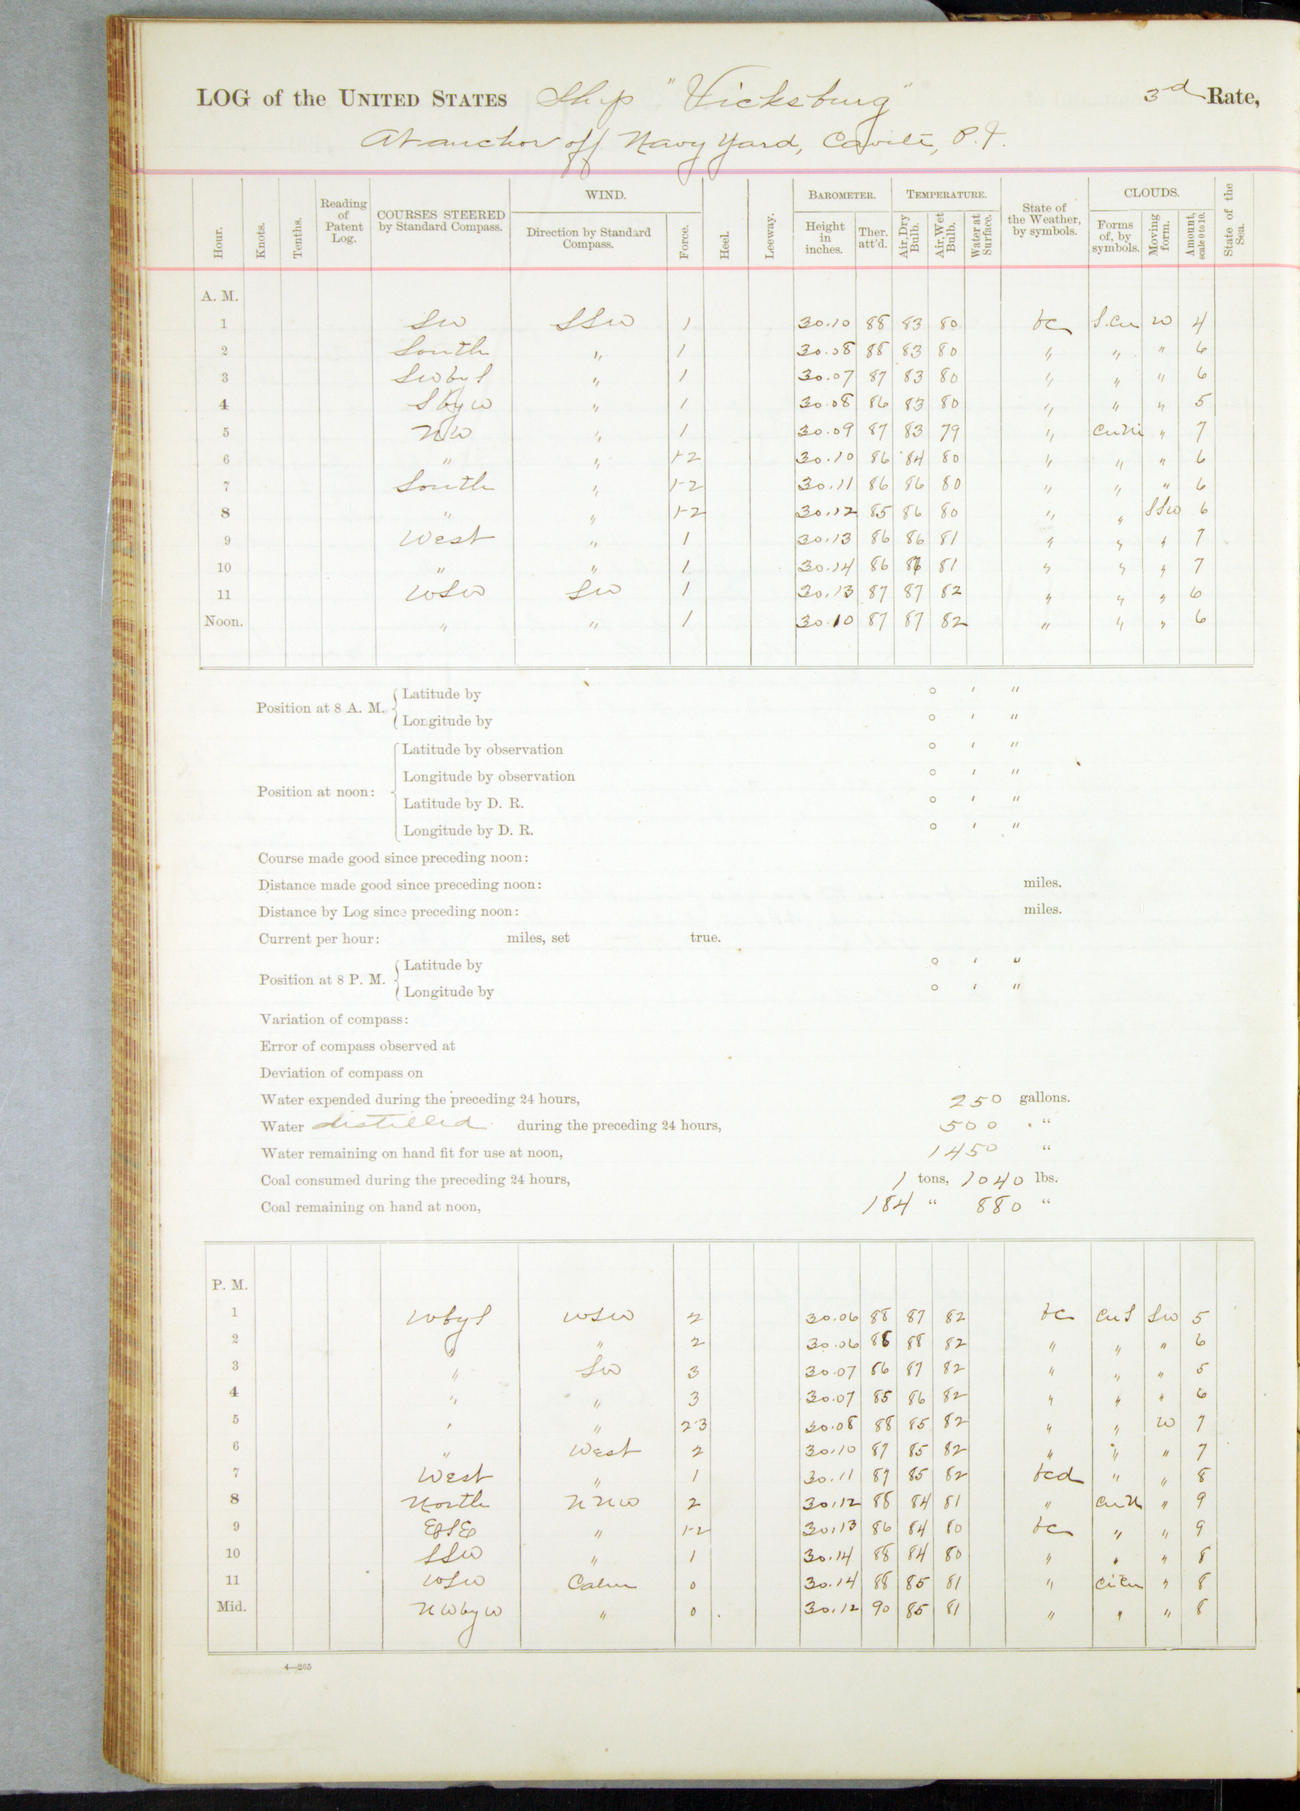 LOG of the UNITED STATES Ship "Vicksburg" 3d Rate,
At anchor off Navy Yard, Cavite, P.I.
Hour. Knots. Tenths. Reading of Patent Log. COURSES STEERED by Standard Compass. WIND. Direction by Standard Compass. Force. Heel. Leeway. BAROMETER. Height in inches. Ther. att'd. TEMPERATURE. Air, Dry Bulb. Air, Wet Bulb. Water at Surface. State of the Weather, by symbols. CLOUDS. Forms of, by symbols. Moving form. Amount, scale 0 to 10. State of the Sea.
A. M.
1 SW SSW 1 30.10 88 83 80 bc S.Cu W 4
2 South " 1 30.08 88 83 80 " " " 6
3 SWbyS " 1 30.07 87 83 80 " " " 6
4 SbyW " 1 30.08 86 83 80 " " " 5
5 NW " 1 30.09 87 83 79 " CuNi " 7
6 " " 1-2 30.10 86 84 80 " " " 6
7 South " 1-2 30.11 86 86 80 " " " 6
8 " " 1-2 30.12 85 86 80 " " SSW 6
9 West " 1 30.13 86 86 81 " " " 7
10 " " 1 30.14 86 86 81 " " " 7
11 WSW SW 1 30.13 87 87 82 " " " 6
Noon. " " 1 30.10 87 87 82 " " " 6
Position at 8 A. M. Latitude by ° ' "
Longitude by ° ' "
Position at noon: Latitude by observation ° ' "
Longitude by observation ° ' "
Latitude by D. R. ° ' "
Longitude by D. R. ° ' "
Course made good since preceding noon:
Distance made good since preceding noon: miles.
Distance by Log since preceding noon: miles.
Current per hour: miles, set true.
Position at 8 P. M. Latitude by ° ' "
Longitude by ° ' "
Variation of compass:
Error of compass observed at
Deviation of compass on
Water expended during the preceding 24 hours, 250 gallons.
Water distilled during the preceding 24 hours, 500 "
Water remaining on hand fit for use at noon, 1450 "
Coal consumed during the preceding 24 hours, 1 tons, 1040 lbs.
Coal remaining on hand at noon, 184 " 880 "
P. M.
1 WbyS WSW 2 30.06 88 87 82 bc CuS SW 5
2 " " 2 30.06 88 88 82 " " " 6
3 " SW 3 30.07 86 87 82 " " " 5
4 " " 3 30.07 85 86 82 " " " 6
5 " " 2-3 30.08 88 85 82 " " W 7
6 " West 2 30.10 87 85 82 " " " 7
7 West " 1 30.11 87 85 82 bcd " " 8
8 North NNW 2 30.12 88 84 81 " CuN " 9
9 ESE " 1-2 30.13 86 84 80 bc " " 9
10 SSW " 1 30.14 88 84 80 " " " 8
11 WSW Calm 0 30.14 88 85 81 " CiCu " 8
Mid. NWbyW " 0 30.12 90 85 81 " " " 8
4—265